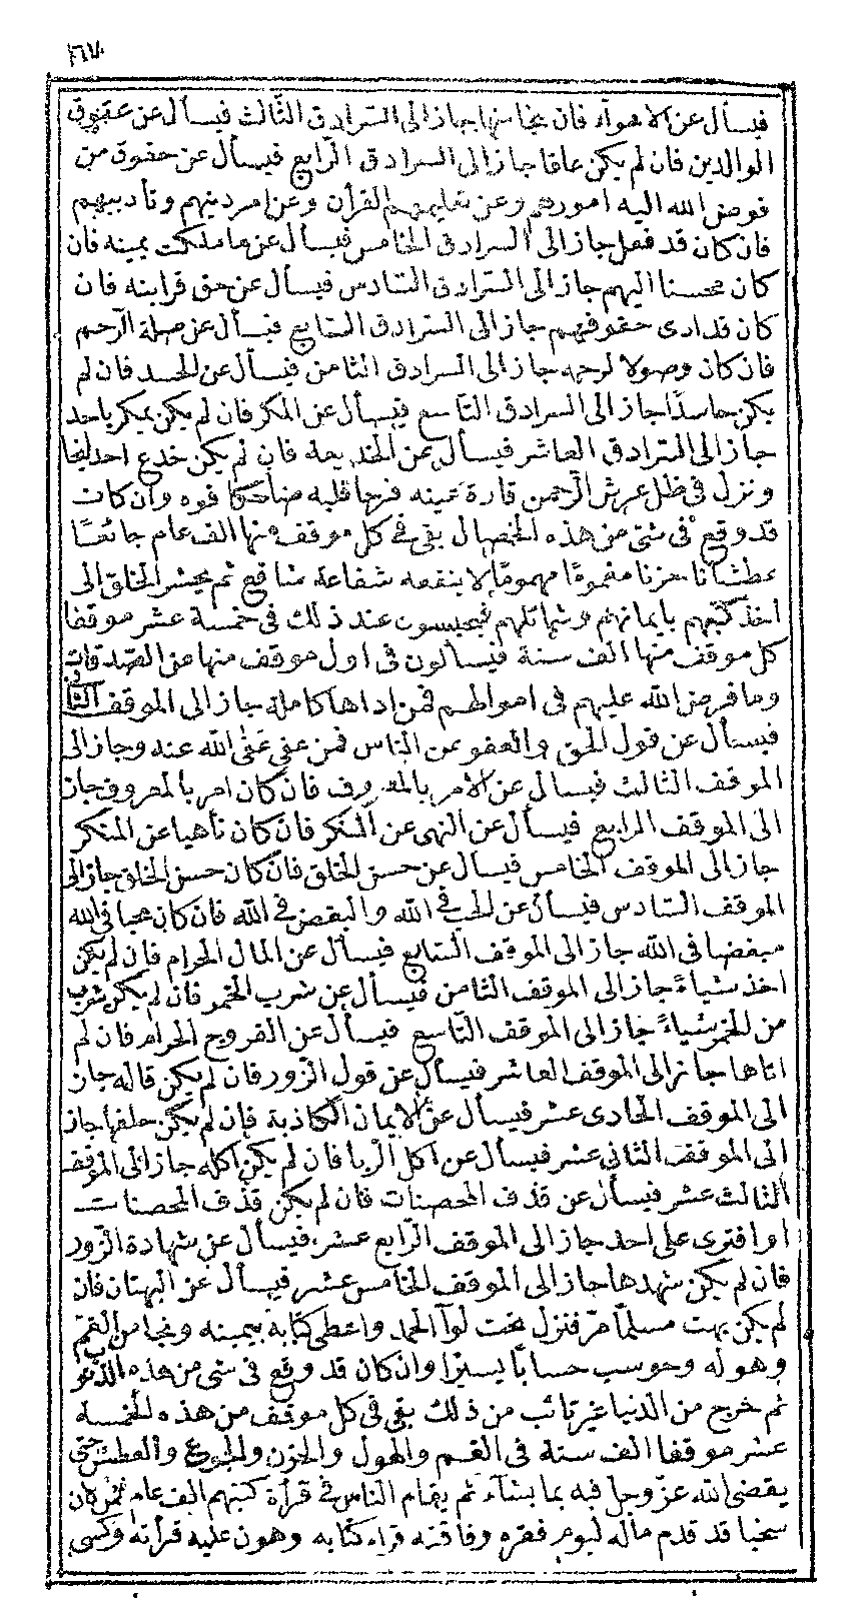 ١٦٧
فيسأل عن الاهواء فان نجا منها جاز الى السّرادق الثّالث فيسأل عن عقوق
الوالدين فان لم يكن عاقا جاز الى السرادق الرّابع فيسأل عن حقوق من
فوض الله اليه امورهم وعن تعليمهم القرأن وعن امر دينهم وتأديبهم
فان كان قد فعل جاز الى السرادق الخامس فيسأل عن ما ملكت يمينه فان
كان محسنا اليهم جاز الى السّرادق السّادس فيسأل عن حق قرابته فان
كان قد ادى حقوقهم جاز الى السّرادق السّابع فيسأل عن صلة الرّحم
فان كان وصولا لرحمه جاز الى السرادق الثامن فيسأل عن الحسد فان لم
يكن حاسدًا جاز الى السرادق التّاسع فيسأل عن المكر فان لم يكن يمكر باحد
جاز الى السّرادق العاشر فيسأل عن الخديعة فان لم يكن خدع احدا نجا
ونزل فى ظل عرش الرّحمن قارة عينه فرحا قلبه ضاحكا فوه وان كان
قد وقع فى شئ من هذه الخصال بقى فى كل موقف منها الف عام جائعًا
عطشانا حزنا مغمومًا مهمومًا لا ينفعه شفاعة شافع ثم يحشر الخلق الى
اخذ كتبهم بايمانهم وشمائلهم فيحبسون عند ذلك فى خمسة عشر موقفا
كل موقف منها الف سنة فيسألون فى اول موقف منها عن الصّدقات
وما فرض الله عليهم فى اموالهم فمن اداها كاملة جاز الى الموقف الثانى
فيسأل عن قول الحق والعفو عن الناس فمن عفى عفى الله عنه وجاز الى
الموقف الثالث فيسأل عن الأمر بالمعروف فان كان امر بالمعروف جاز
الى الموقف الرابع فيسأل عن النهى عن المنكر فان كان ناهيا عن المنكر
جاز الى الموقف الخامس فيسأل عن حسن الخلق فان كان حسن الخلق جاز الى
الموقف السّادس فيسأل عن الحب فى الله والبغض فى الله فان كان محبا فى الله
مبغضا فى الله جاز الى الموقف السّابع فيسأل عن المال الحرام فان لم يكن
اخذ شيأً جاز الى الموقف الثامن فيسأل عن شرب الخمر فان لم يكن شرب
من الخمر شيأً جاز الى الموقف التّاسع فيسأل عن الفروج الحرام فان لم
اتاها جاز الى الموقف العاشر فيسأل عن قول الزّور فان لم يكن قاله جاز
الى الموقف الحادى عشر فيسأل عن الايمان الكاذبة فان لم يكن حلفها جاز
الى الموقف الثانى عشر فيسأل عن اكل الرّبا فان لم يكن اكله جاز الى الموقف
الثالث عشر فيسأل عن قذف المحصنات فان لم يكن قذف المحصنات
او افترى على احد جاز الى الموقف الرّابع عشر فيسأل عن شهادة الزّور
فان لم يكن شهدها جاز الى الموقف الخامس عشر فيسأل عن البهتان فان
لم يكن بهت مسلمًا مرّ فنزل تحت لوآ الحمد واعطى كتابه بيمينه ونجا من الغمّ
وهوله وحوسب حسابًا يسيرًا وان كان قد وقع فى شئ من هذه الذنوب
ثم خرج من الدنيا غير تائب من ذلك بقى فى كل موقف من هذه الخمسة
عشر موقفا الف سنة فى الغم والهول والحزن والجوع والعطش حتى
يقضى الله عزّ وجل فيه بما يشآء ثم يقام الناس فى قرأة كتبهم الف عام فمن كان
سخيا قد قدم ماله ليوم فقره وفاقته قراء كتابه وهون عليه قرأته وكسى